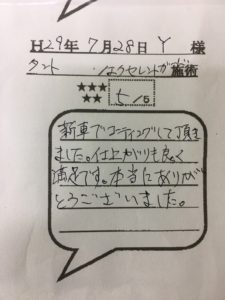 H29年7月28日 Y 様
タント ・ハイクセレントガード施術
★★★
★★ 5/5
新車でコーティングして頂き
ました。仕上がりも良く
満足です。本当にありが
とうございました。